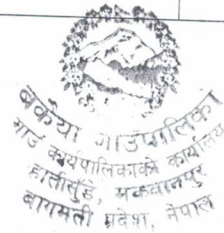 बकैया गाउँपालिका
गाउँ कार्यपालिकाको कार्यालय
हात्तीसुँढे, मकवानपुर
बागमती प्रदेश, नेपाल